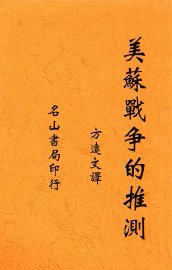 美蘇戰爭的推測
方達文譯
名山書局印行